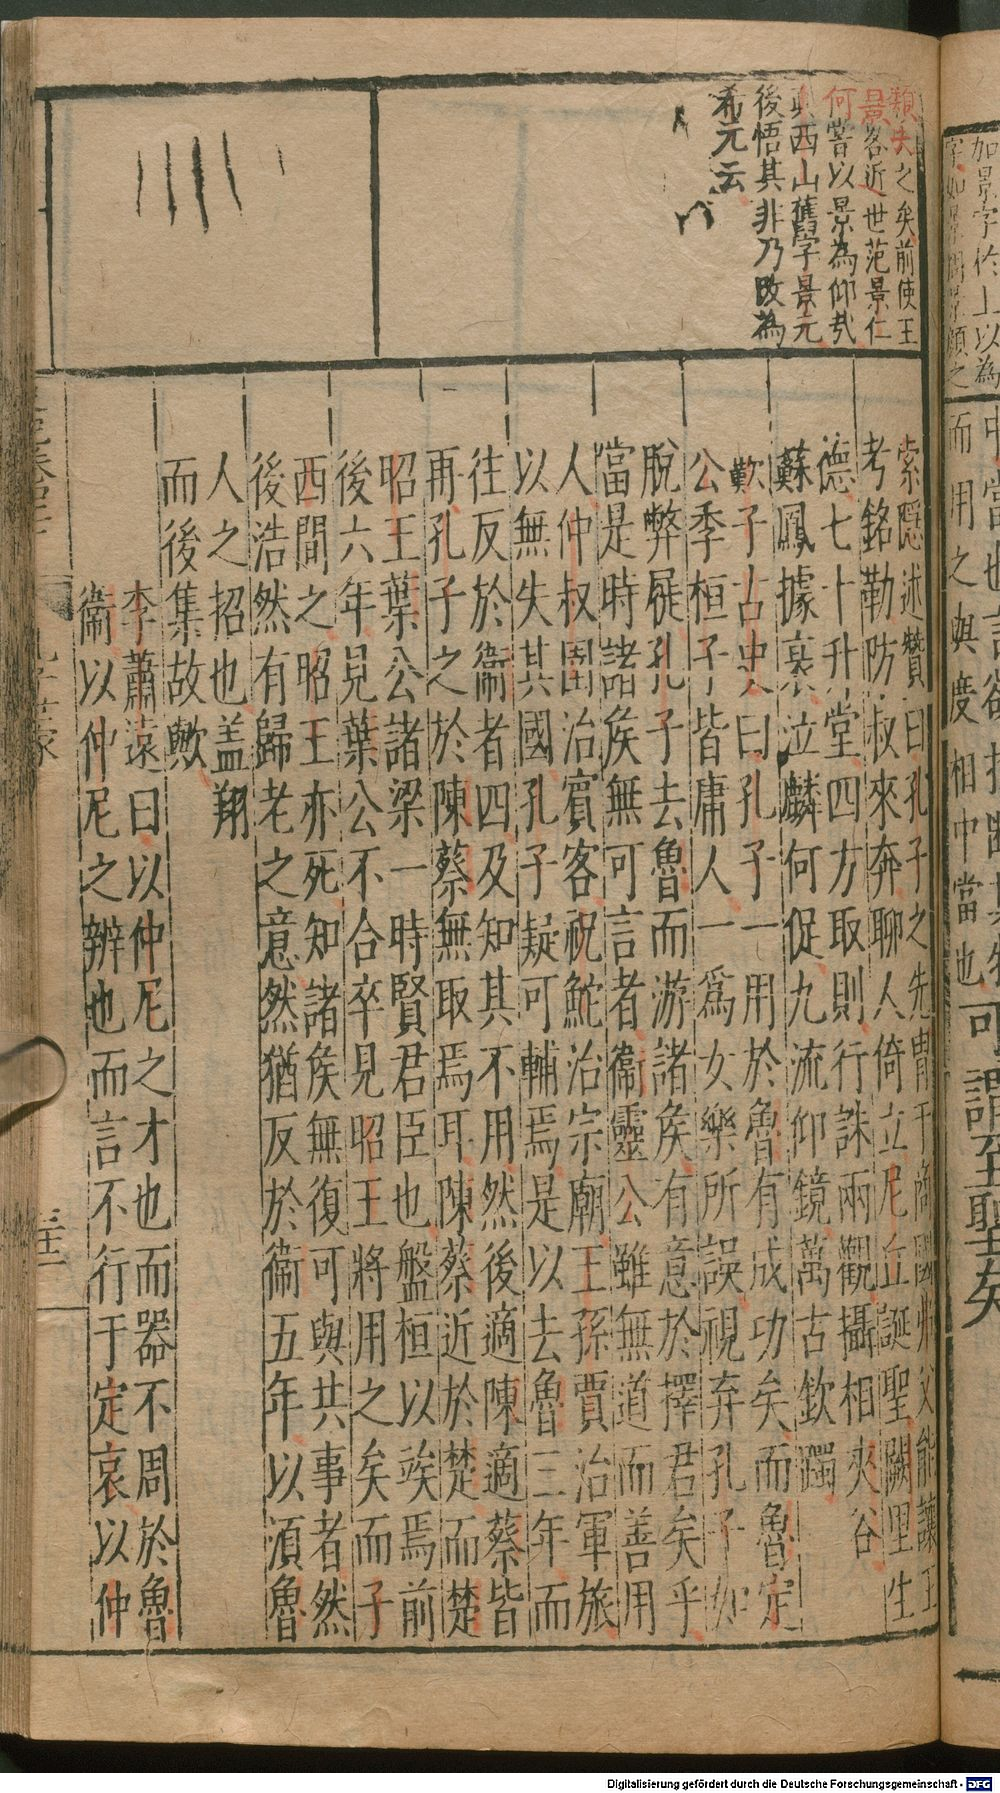 加景字於上以為
而用之與度相中當也可謂至聖矣
類失之矣前使王
景各近世范景仁
何嘗以景為仰哉
真西山舊字景元
後悟其非乃改為
希元云
索隱述贊曰孔子之先胄于商國弗父能讓正
考銘勒防叔來奔聊人倚立尼丘誕聖闕里生
德七十升堂四方取則行誅兩觀攝相夾谷
蘇鳳據衰泣麟何促九流仰鏡萬古欽躅
歎子古史曰孔子一用於魯有成功矣而魯定
公季桓子皆庸人一為女樂所誤視弃孔子如
脫弊屣孔子去魯而游諸矦有意於擇君矣乎
當是時諸矦無可言者衞靈公雖無道而善用
人仲叔圉治賓客祝鮀治宗廟王孫賈治軍旅
以無失其國孔子疑可輔焉是以去魯三年而
往反於衞者四及知其不用然後適陳適蔡皆
再孔子之於陳蔡無取焉耳陳蔡近於楚而楚
昭王葉公諸梁一時賢君臣也盤桓以竢焉前
後六年見葉公不合卒見昭王將用之矣而子
西間之昭王亦死知諸矦無復可與共事者然
後浩然有歸老之意然猶反於衞五年以須魯
人之招也盖翔
而後集故歟
李蕭遠曰以仲尼之才也而器不周於魯
衞以仲尼之辨也而言不行于定哀以仲
Digitalisierung gefördert durch die Deutsche Forschungsgemeinschaft - DFG